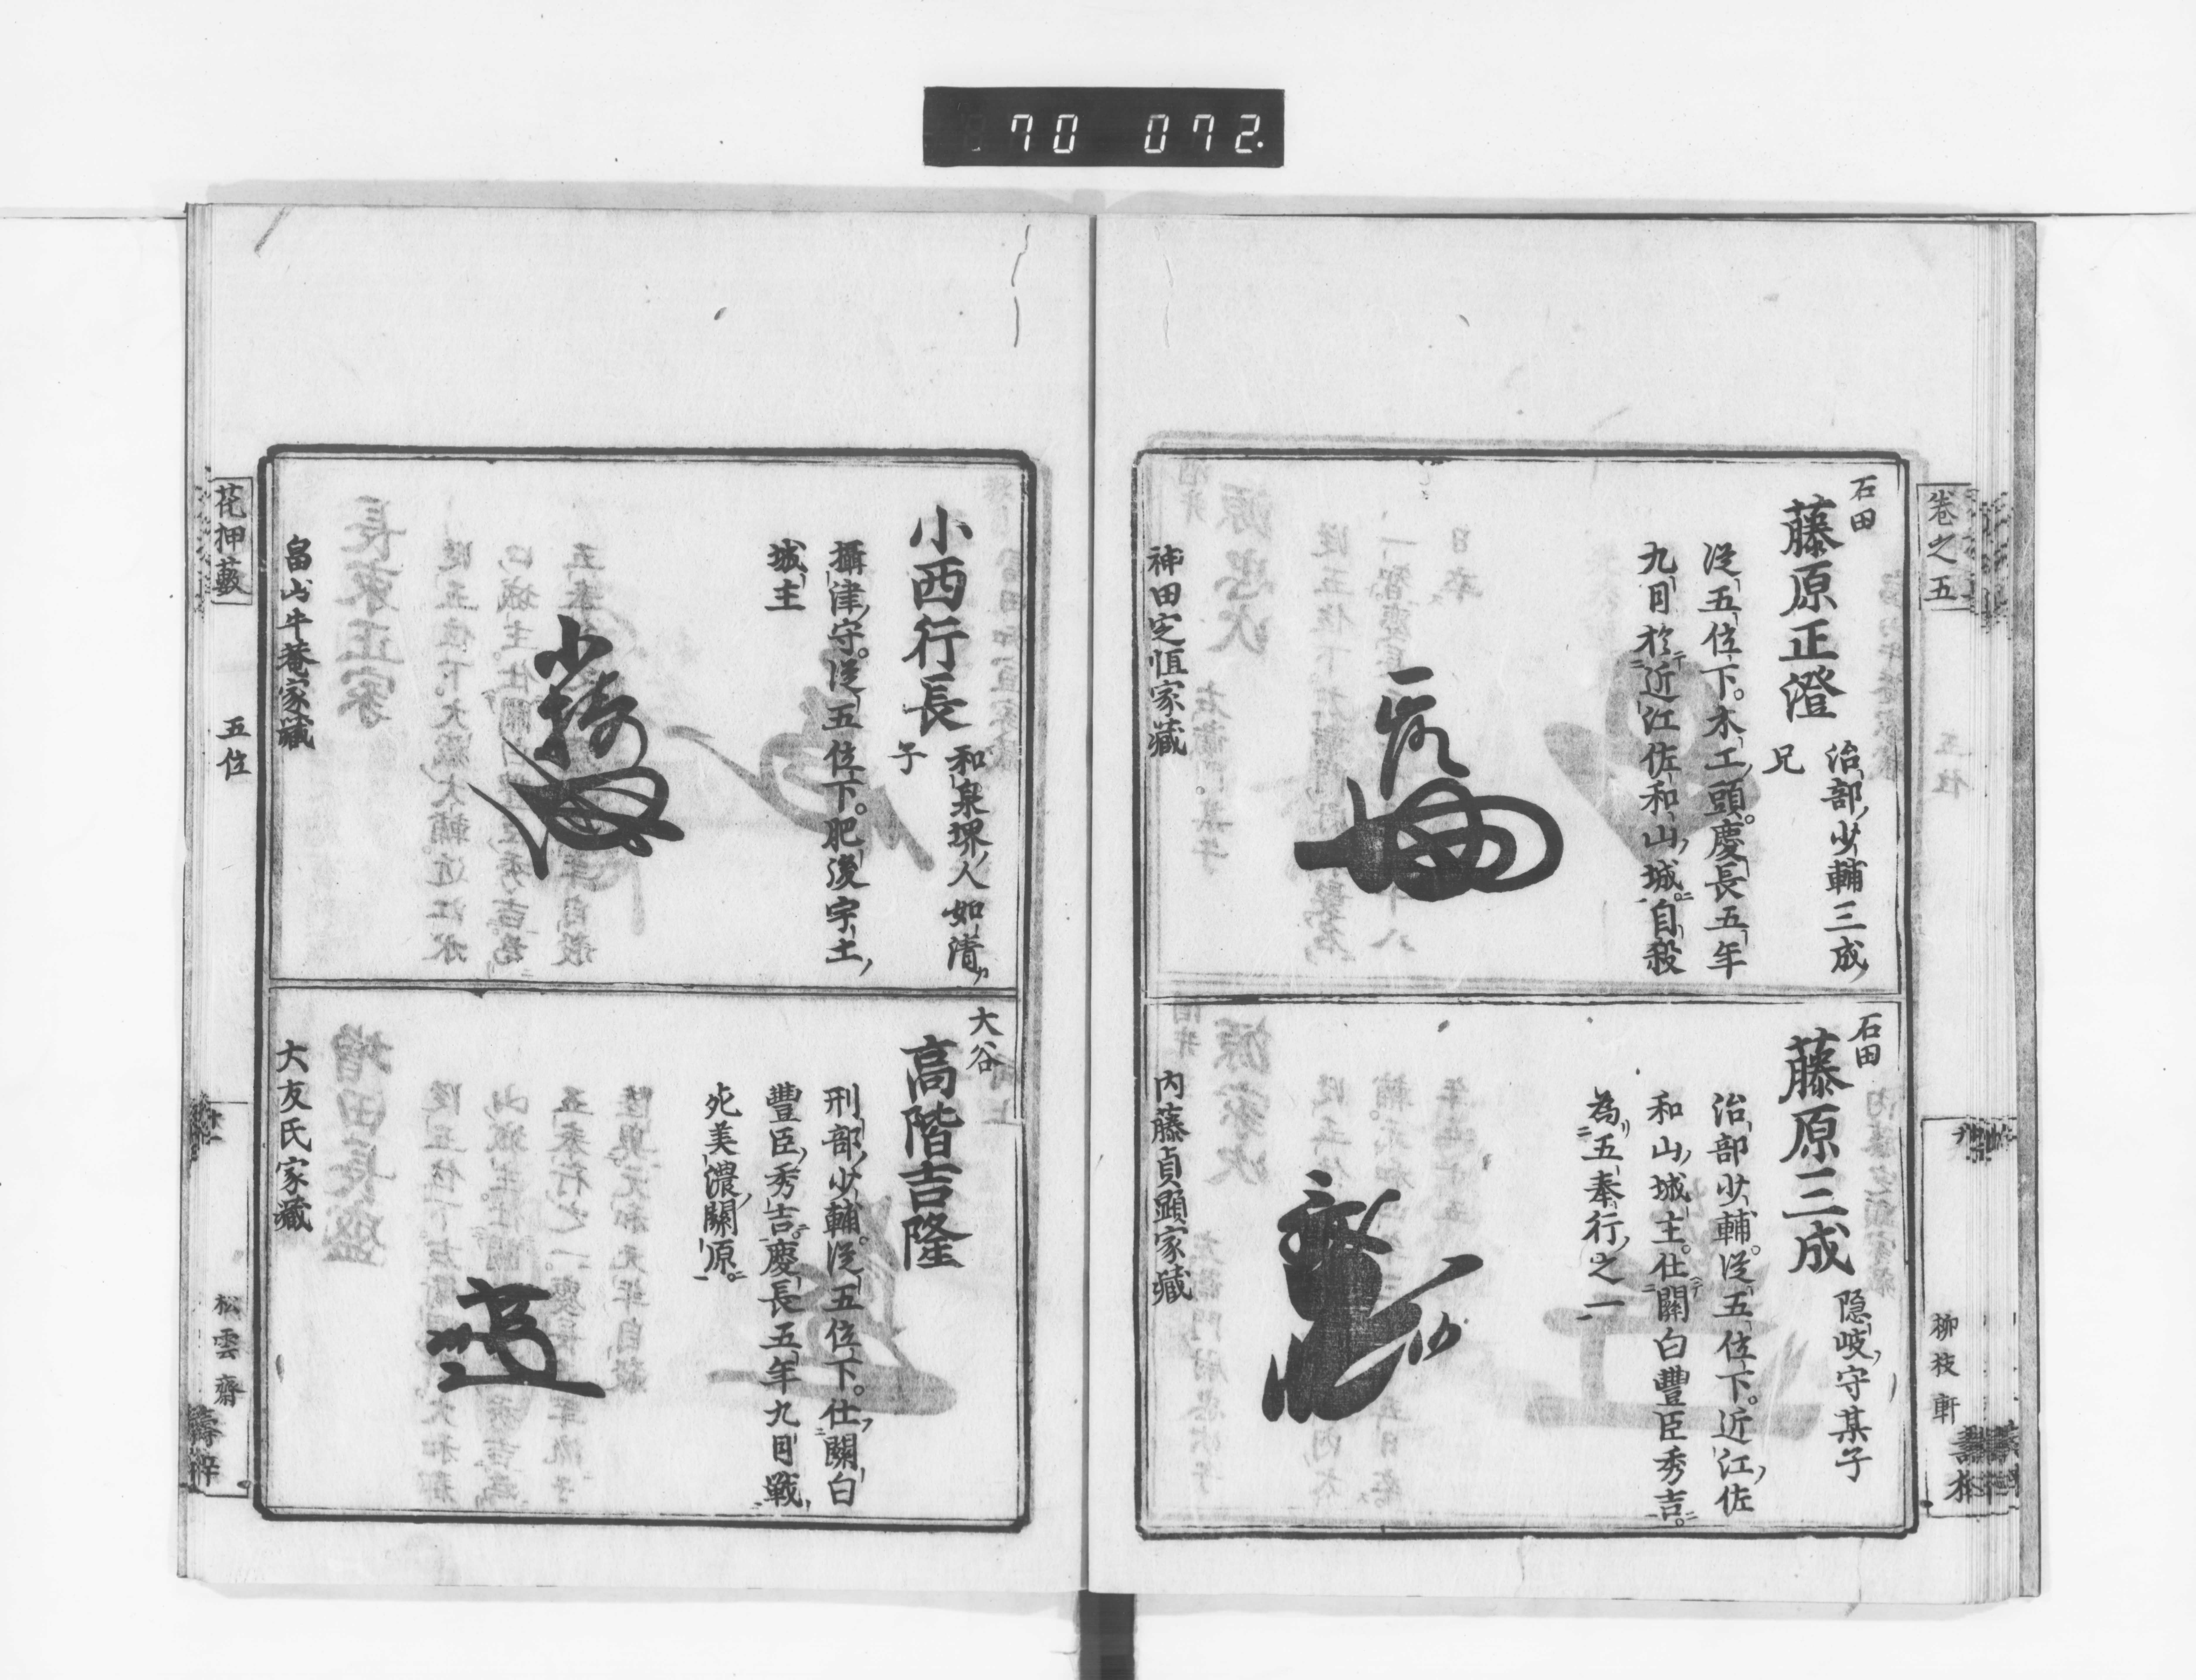 70 072.
巻之五
柳枝軒
石田
藤原正澄
治部少輔三成
兄
従五位下。木工頭。慶長五年
九月於近江佐和山城。自殺
神田定恒家蔵
石田
藤原三成
隠岐守某子
治部少輔。従五位下。近江佐
和山城主。仕關白豊臣秀吉。
為五奉行之一
内藤貞顕家蔵
小西行長
和泉堺人如清
子
攝津守。従五位下。肥後宇土
城主
畠山牛菴家蔵
大谷
高階吉隆
刑部少輔。従五位下。仕關白
豊臣秀吉。慶長五年九月戦
死美濃關原。
大友氏家蔵
花押藪
五位
松雲齋